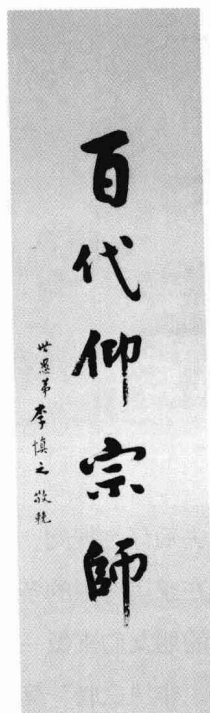 百代仰宗師
世愚弟李慎之敬輓